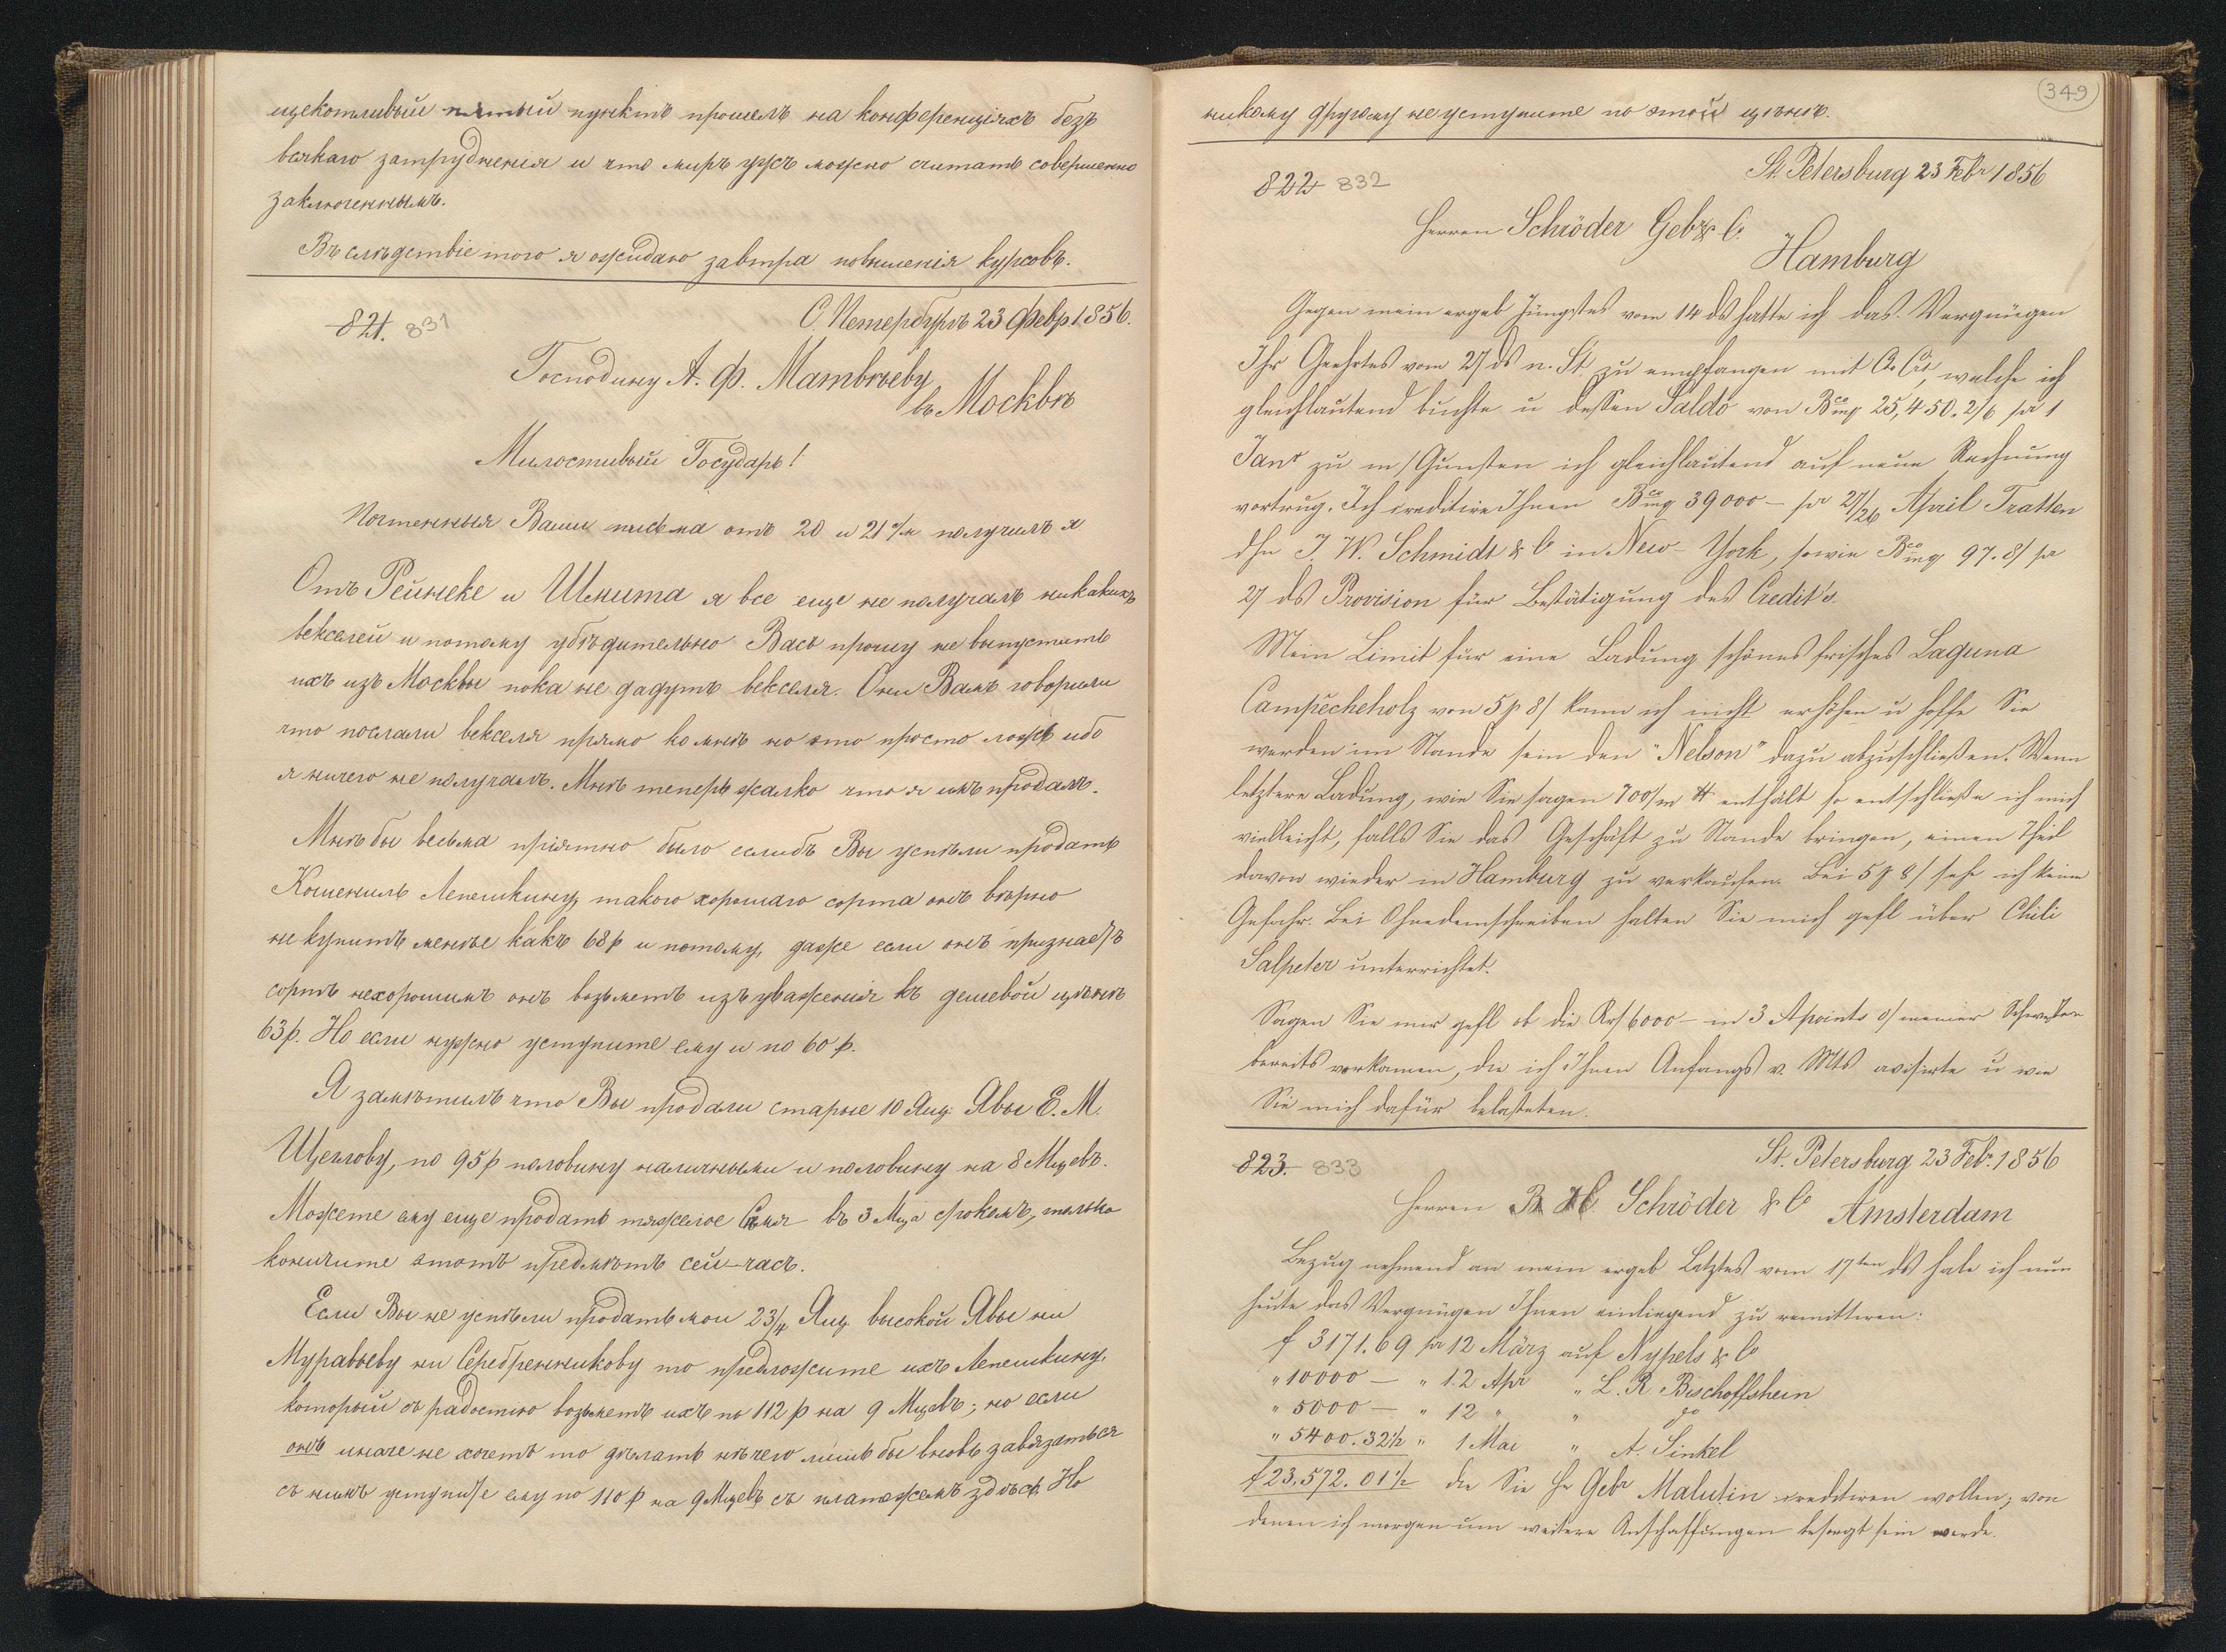 щекотливый пятый пунктъ прошелъ на конференціяхъ безъ
всякаго затрудненія и что миръ ужъ можно считать совершенно
заключеннымъ.
Въ слѣдствіе того я ожидаю завтра повышенія курсовъ.
821. 831
С. Петербургъ 23 Февр 1856.
Господину А. Ф. Матвѣеву
въ Москвѣ
Милостивый Государь!
Почтенныя Ваши письма отъ 20 и 21 с/м получилъ я
Отъ Рейнеке и Шмита я все еще не получалъ никакихъ
векселей и потому убѣдительно Васъ прошу не выпустить
ихъ изъ Москвы пока не дадутъ векселя. Они Вамъ говорили
что послали векселя прямо ко мнѣ но это просто ложь ибо
я ничего не получалъ. Мнѣ теперь жалко что я имъ продалъ.
Мнѣ бы весьма пріятно было еслибъ Вы успѣли продать
Кошениль Лепешкину, такого хорошаго сорта онъ вѣрно
не купитъ менѣе какъ 68 р и потому, даже если онъ признаетъ
сортъ нехорошимъ онъ возьметъ изъ уваженія къ дешевой цѣнѣ
63 р. Но если нужно уступите ему и по 60 р.
Я замѣтилъ что Вы продали старые 10 Ящ. Явы Е. М.
Щеглову, по 95 р половину наличными и половину на 8 Мцевъ.
Можете ему еще продать тяжелое въ 3 Мца срокомъ, только
кончите этотъ предмѣтъ сей-часъ.
Если Вы не успѣли продать мои 23/4 Ящ. высокой Явы ни
Муравьеву ни Серебренникову то предложите ихъ Лепешкину,
который съ радостью возьметъ ихъ по 112 р на 9 Мцевъ; но если
онъ иначе не хочетъ то дѣлать нѣчего лишь бы вновь завязаться
съ нимъ уступите ему по 110 р на 9 Мцевъ съ платежемъ здѣсь. Но
349
никому другому не уступите по этой цѣнѣ.
822 832
St. Petersburg 23 Febr 1856
Herren Schröder Gebr & C.
Hamburg
Gegen mein ergeb Jüngstes vom 14 ds hatte ich das Vergnügen
Ihr Geehrtes vom 27 ds n. St. zu empfangen mit Co Ct, welche ich
gleichlautend buchte u dessen Saldo von Bco mg 25,450.2/6 pr 1
Janr zu m/Gunsten ich gleichlautend auf neue Rechnung
vortrug. Ich creditire Ihnen Bco mg 39000 – pr 27/26 April Tratten
dhn J. W. Schmidt & C in New-York, sowie Bco mg 97.8/ pr
27 ds Provision für Bestätigung des Credit's.
Mein Limit für eine Ladung schönes frisches Laguna
Campecheholz von 5 p 8/ kann ich nicht erhöhen u hoffe Sie
werden im Stande sein den "Nelson" dazu abzuschließen. Wenn
letztere Ladung, wie Sie sagen 700/m ℔ enthält so entschließe ich mich
vielleicht, falls Sie das Geschäft zu Stande bringen, einen Theil
davon wieder in Hamburg zu verkaufen. Bei 5 p 8/ sehe ich keine
Gefahr. Bei Ohnedemschreiben halten Sie mich gefl über Chili
Salpeter unterrichtet.
Sagen Sie mir gefl ob die Rr/ 6000 – in 3 Apoints o/ meiner Schwester
bereits vorkamen, die ich Ihnen Anfangs v. Mts avisirte u wie
Sie mich dafür belasteten.
823. 833
St. Petersburg 23 Febr. 1856
Herren B H Schröder & C
Amsterdam
Bezug nehmend an mein ergeb Letztes vom 17ten ds habe ich nun
heute das Vergnügen Ihnen einliegend zu remittiren:
f 3171.69 pr 12 März auf Nypels & Co
" 10000 – " 12 Apr " L. R Bischoffshein
" 5000 – " 12 " " do
" 5400.32½ " 1 Mai " A. Sinkel
f 23.572.01½ die Sie Hr Gebr Malutin creditiren wollen; von
denen ich morgen um weitere Anschaffungen besorgt sein werde.